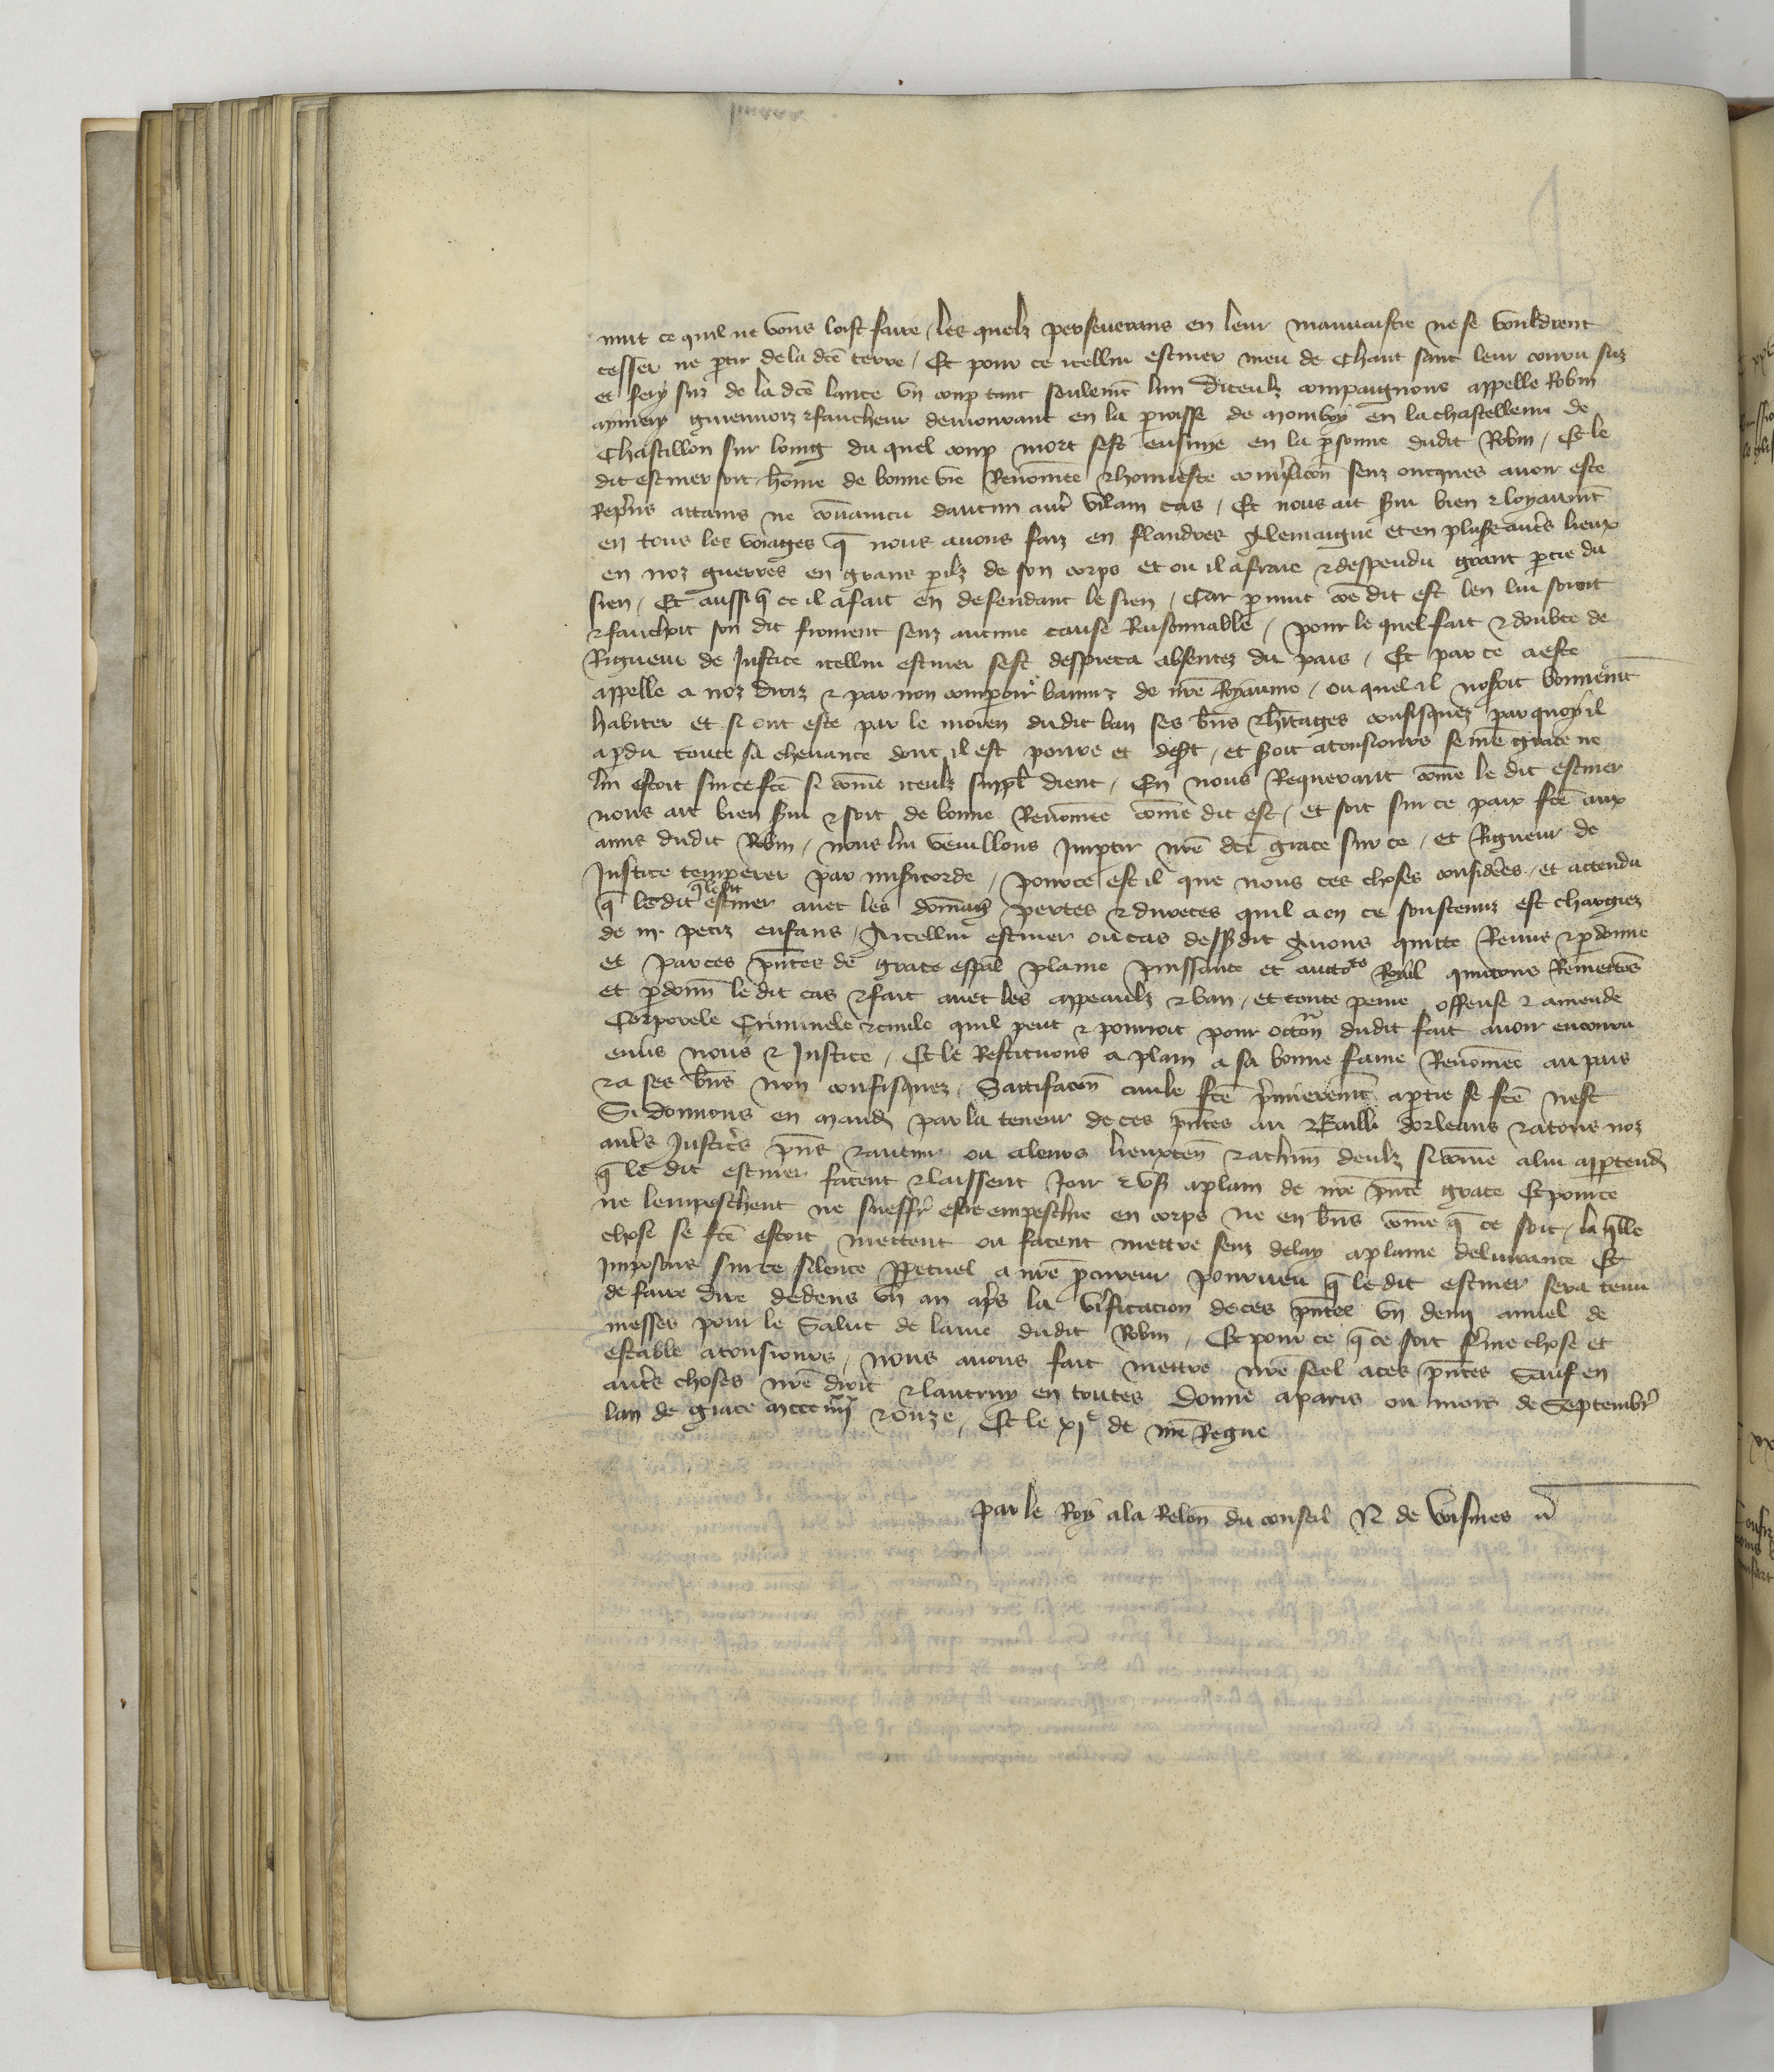 nuit ce quil ne vous loist faire / les quelz perseverans en leur mauvaistie ne se vouldrent
cesser ne ptir de la dce terre / Et pour ce icellui escuier meu de chaut sanc leur couru sus
et fery sur de la dce lance un coup tant seulemt lun diceulx compaignons appelle Robin
aymery guiermoiz & faucheur demourant en la proisse de Monboy en la chastellenie de
Chastillon sur loing du quel coup mort sest ensuive en la psonne dudit Robin / Et le
dit escuier soit hōme de bonne vie Renōmee & honneste convsacōn senz oncques avoir este
Repris attains ne cōvaincu dautun autr vilain cas / Et nous ait svi bien & loyaumt
en tous les voiages q nous avons faiz en flandres Alemaigne et en plusrs autrs lieux
en noz guerres en grans pilz de son corps et ou il a fraie & despendu grant ptie du
sien / Et aussi q ce il a fait en defendant le sien / Car p nuit cōe dit est len lui soioit
& fauchoit son dit froment senz aucune cause Raisonnable / pour le quel fait & doubte de
Rigueur de Justice icellui escuier sest despieca absentez du pais / Et par ce a este
appelle a noz droiz & par non comparoir banniz de nre Royaume / ou quel il nosoit bonnemt
habiter et si ont este par le moien dudit ban ses bns & hitages confisquez par quoy il
a pdu toute sa chevance dont il est povre et desert / et soit a tousiours se nre grace ne
lui estoit sur ce fce si cōme iceulx suppl dient / En nous Requerant cōme le dit escuier
nous ait bien svi & soit de bonne Renōmee cōme dit est / et soit sur ce paix fce aux
amis dudit Robin / nous lui veuillons Impartir nre dce grace sur ce / et Rigueur de
Justice temperer par misericorde / pour ce est il que nous ces choses considerees / et attendu
q le dit escuier avec les dōmages pertes & duretes quil a en ce soustenuz est chargiez
de iij petiz enfans / A icellui escuier ou cas dessusdit Avons quitte Remis & pdonne
et par ces pntes de grace espal plaine puissance et auctote Royal quittons Remettōs
et pdonn le dit cas & fait avec les appeaulx & ban / et toute peine offense & amende
Corporele Criminele & civile quil peut & pourroit pour occōn dudit fait avoir encouru
envs nous & Justice / Et le Restituons a plain a sa bonne fame Renōmee au pais
& a ses bns non confisquez / Sattifacōn civile fce premieremt a ptie se fce nest
Si donnons en mandt par la teneur de ces pntes au Bailli dorleans & a tous noz
autrs Justicrs pns & avenir ou a leurs lieuxten & a chun deulx si cōme a lui apptendra
q le dit escuier facent & laissent Joir & usr a plain de nre pnte grace Et pour ce
ne lempeschent ne sueffrt estre empeschie en corps ne en bns cōme q ce soit / la qlle
chose se fce estoit mettent ou facent mettre senz delay a plaine delivrance Et
Imposons sur ce silence ppetuel a nre pcureur pourveu q le dit escuier sera tenu
de faire dire dedens un an aprs la vrificacion de ces pntes un demi annel de
messes pour le Salut de lame dudit Robin / Et pour ce q ce soit ferme chose et
estable a tousiours / nous avons fait mettre nre seel a ces pntes Sauf en
autrs choses nre droit & lautruy en toutes Donne a paris ou mois de Septembr
lan de grace mccciiijxx & onze / Et le xje de nre Regne
Par le Roy a la Relōn du conseil N de voisines